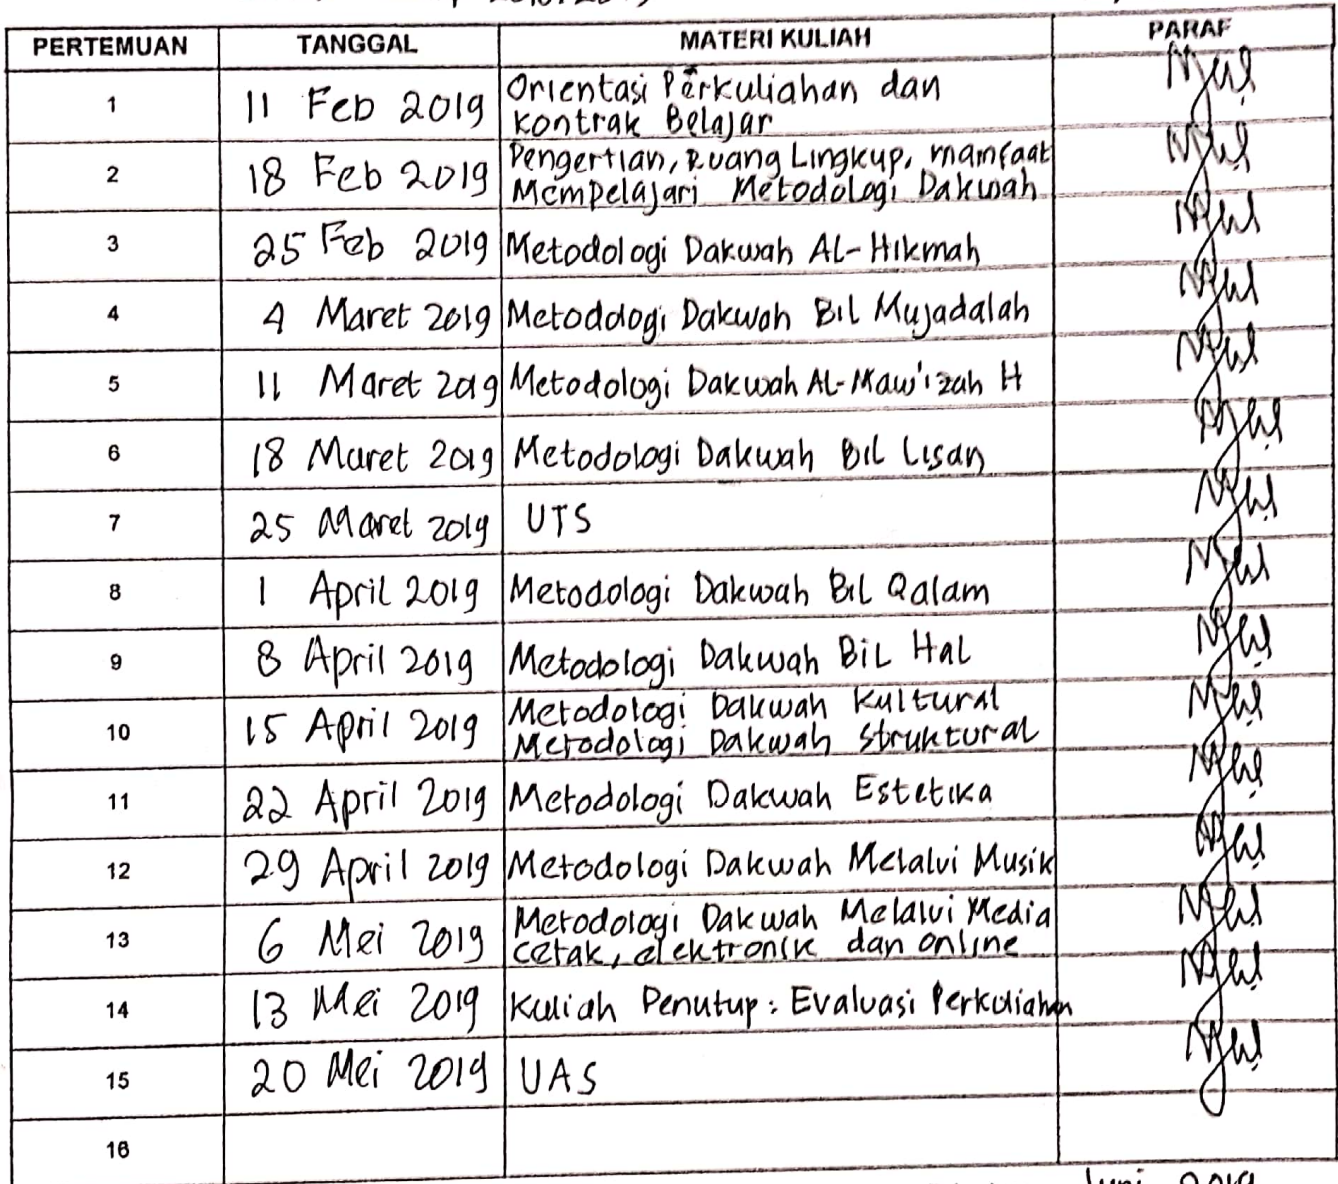 2019
PERTEMUAN TANGGAL MATERI KULIAH PARAF
1 11 Feb 2019 Orientasi Perkuliahan dan
Kontrak Belajar
2 18 Feb 2019 Pengertian, Ruang Lingkup, mamfaat
Mempelajari Metodologi Dakwah
3 25 Feb 2019 Metodologi Dakwah Al-Hikmah
4 4 Maret 2019 Metodologi Dakwah Bil Mujadalah
5 11 Maret 2019 Metodologi Dakwah Al-Maw'izah H
6 18 Maret 2019 Metodologi Dakwah Bil Lisan
7 25 Maret 2019 UTS
8 1 April 2019 Metodologi Dakwah Bil Qalam
9 8 April 2019 Metodologi Dakwah Bil Hal
10 15 April 2019 Metodologi Dakwah Kultural
Metodologi Dakwah Struktural
11 22 April 2019 Metodologi Dakwah Estetika
12 29 April 2019 Metodologi Dakwah Melalui Musik
13 6 Mei 2019 Metodologi Dakwah Melalui Media
Cetak, elektronik dan online
14 13 Mei 2019 Kuliah Penutup : Evaluasi Perkuliahan
15 20 Mei 2019 UAS
16
Juni 2019